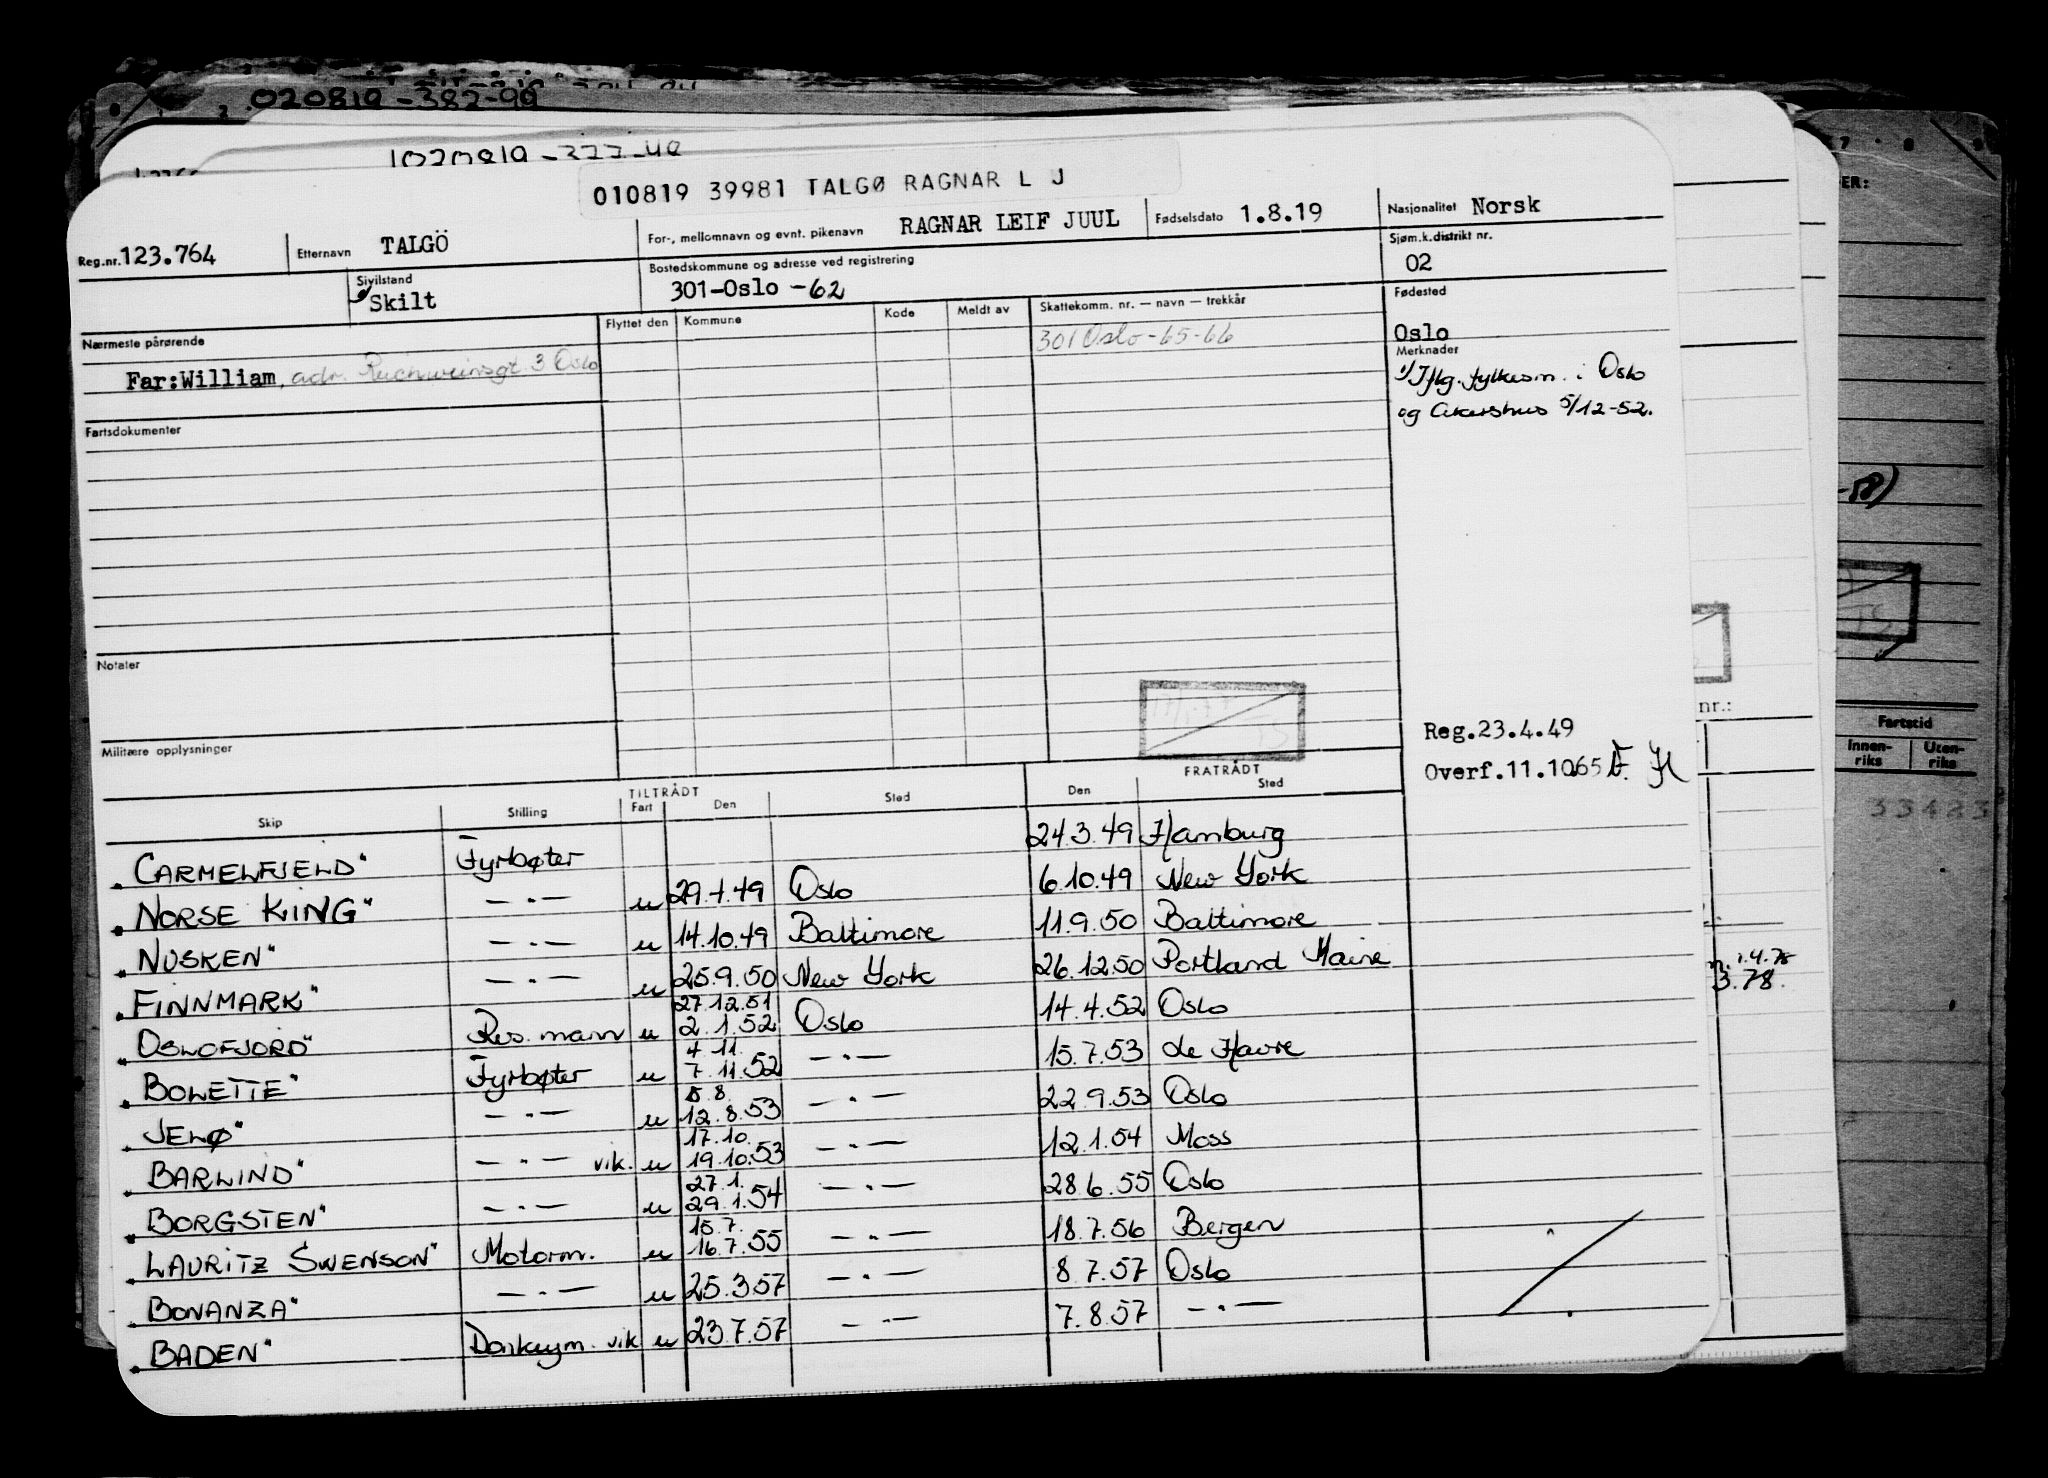 020819-382-90
010819 39981 TALGØ RAGNAR L J
Reg.nr. 123.764 Etternavn TALGÖ For-, mellomnavn og evnt. pikenavn RAGNAR LEIF JUUL Fødselsdato 1.8.19 Nasjonalitet Norsk
Sivilstand Skilt Bostedskommune og adresse ved registrering 301-Oslo -62 Sjøm.k.distrikt nr. 02
Nærmeste pårørende Flyttet den Kommune Kode Meldt av Skattekomm. nr. — navn — trekkår Fødested
301 Oslo-65-66 Oslo
Far:William, adr. Reichweinsgt. 3 Oslo
Merknader
1/ Iflg. fylkesm. i Oslo
og Akershus 5/12-52.
Fartsdokumenter
Notater
Militære opplysninger
Reg.23.4.49
Overf.11.1065
nr.:
Fartstid
Innen-riks Uten-riks
33423
TILTRÅDT FRATRÅDT
Skip Stilling Fart Den Sted Den Sted
"CARMELFJELD" Fyrbøter 24.3.49 Hamburg
"NORSE KING" —·— u 29.4.49 Oslo 6.10.49 New York
"NUSKEN" —·— u 14.10.49 Baltimore 11.9.50 Baltimore
"FINNMARK" —·— u 25.9.50 New York 26.12.50 Portland Maine
27.12.51
"OSLOFJORD" Res. mann u 2.1.52 Oslo 14.4.52 Oslo
4.11.
"BOLETTE" Fyrbøter u 7.11.52 —·— 15.7.53 Le Havre
8.8.
"JELØ" —·— u 12.8.53 —·— 22.9.53 Oslo
17.10.
"BARLIND" —·— vik. u 19.10.53 —·— 12.1.54 Moss
27.1.
"BORGSTEN" —·— u 29.1.54 —·— 28.6.55 Oslo
15.7.
"LAURITZ SWENSON" Motorm. u 16.7.55 —·— 18.7.56 Bergen
"BONANZA" —·— u 25.3.57 —·— 8.7.57 Oslo
"BADEN" Donkeym. vik u 23.7.57 —·— 7.8.57 —·—